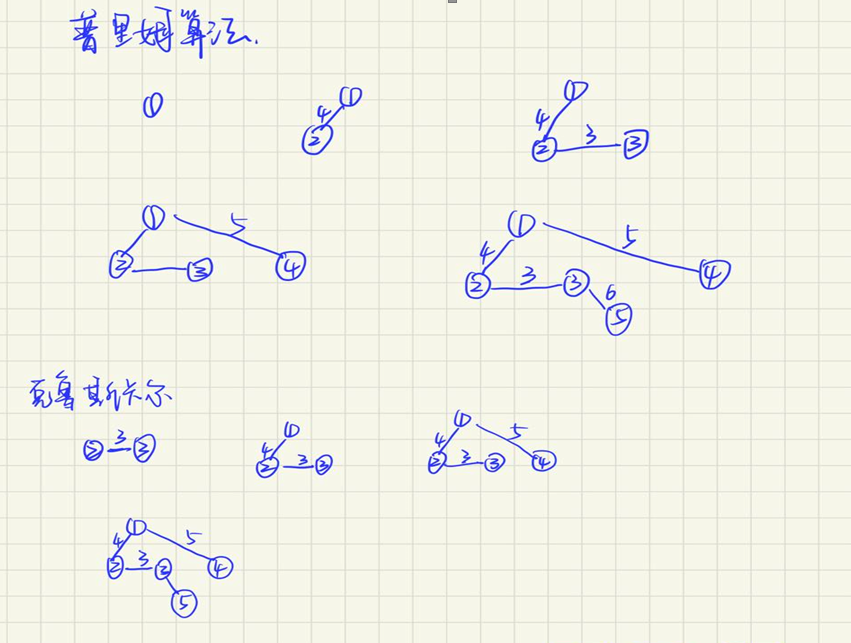 普里姆算法.
①
① 4 ②
① 4 ② 3 ③
① 5 ② ③ ④
① 5 4 ② 3 ③ ④ 6 ⑤
克鲁斯卡尔
② 3 ③
① 4 ② 3 ③
① 4 5 ② 3 ③ ④
① 4 5 ② 3 ③ ④ ⑤